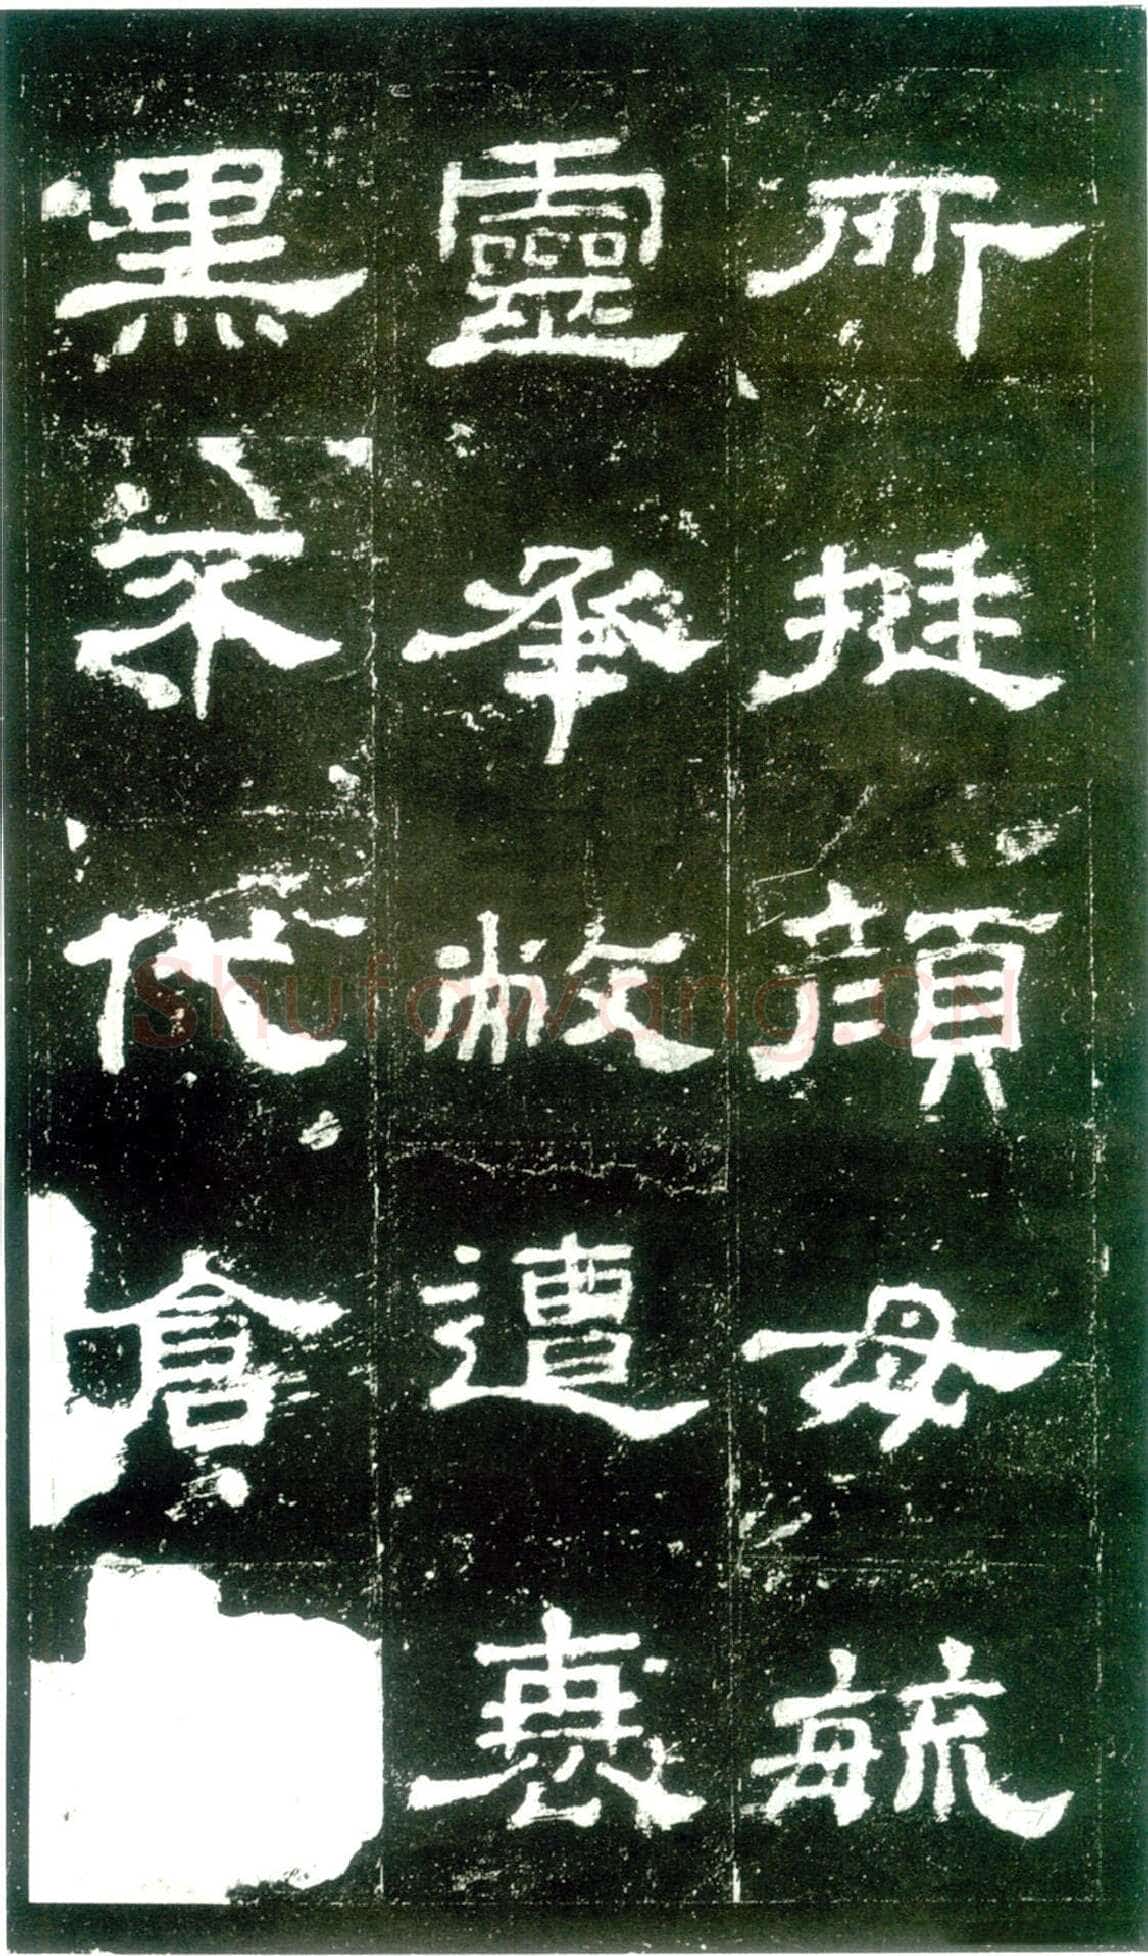 所挺顏母毓
靈承敝遭衰
黑不代倉
Shufawang.CN